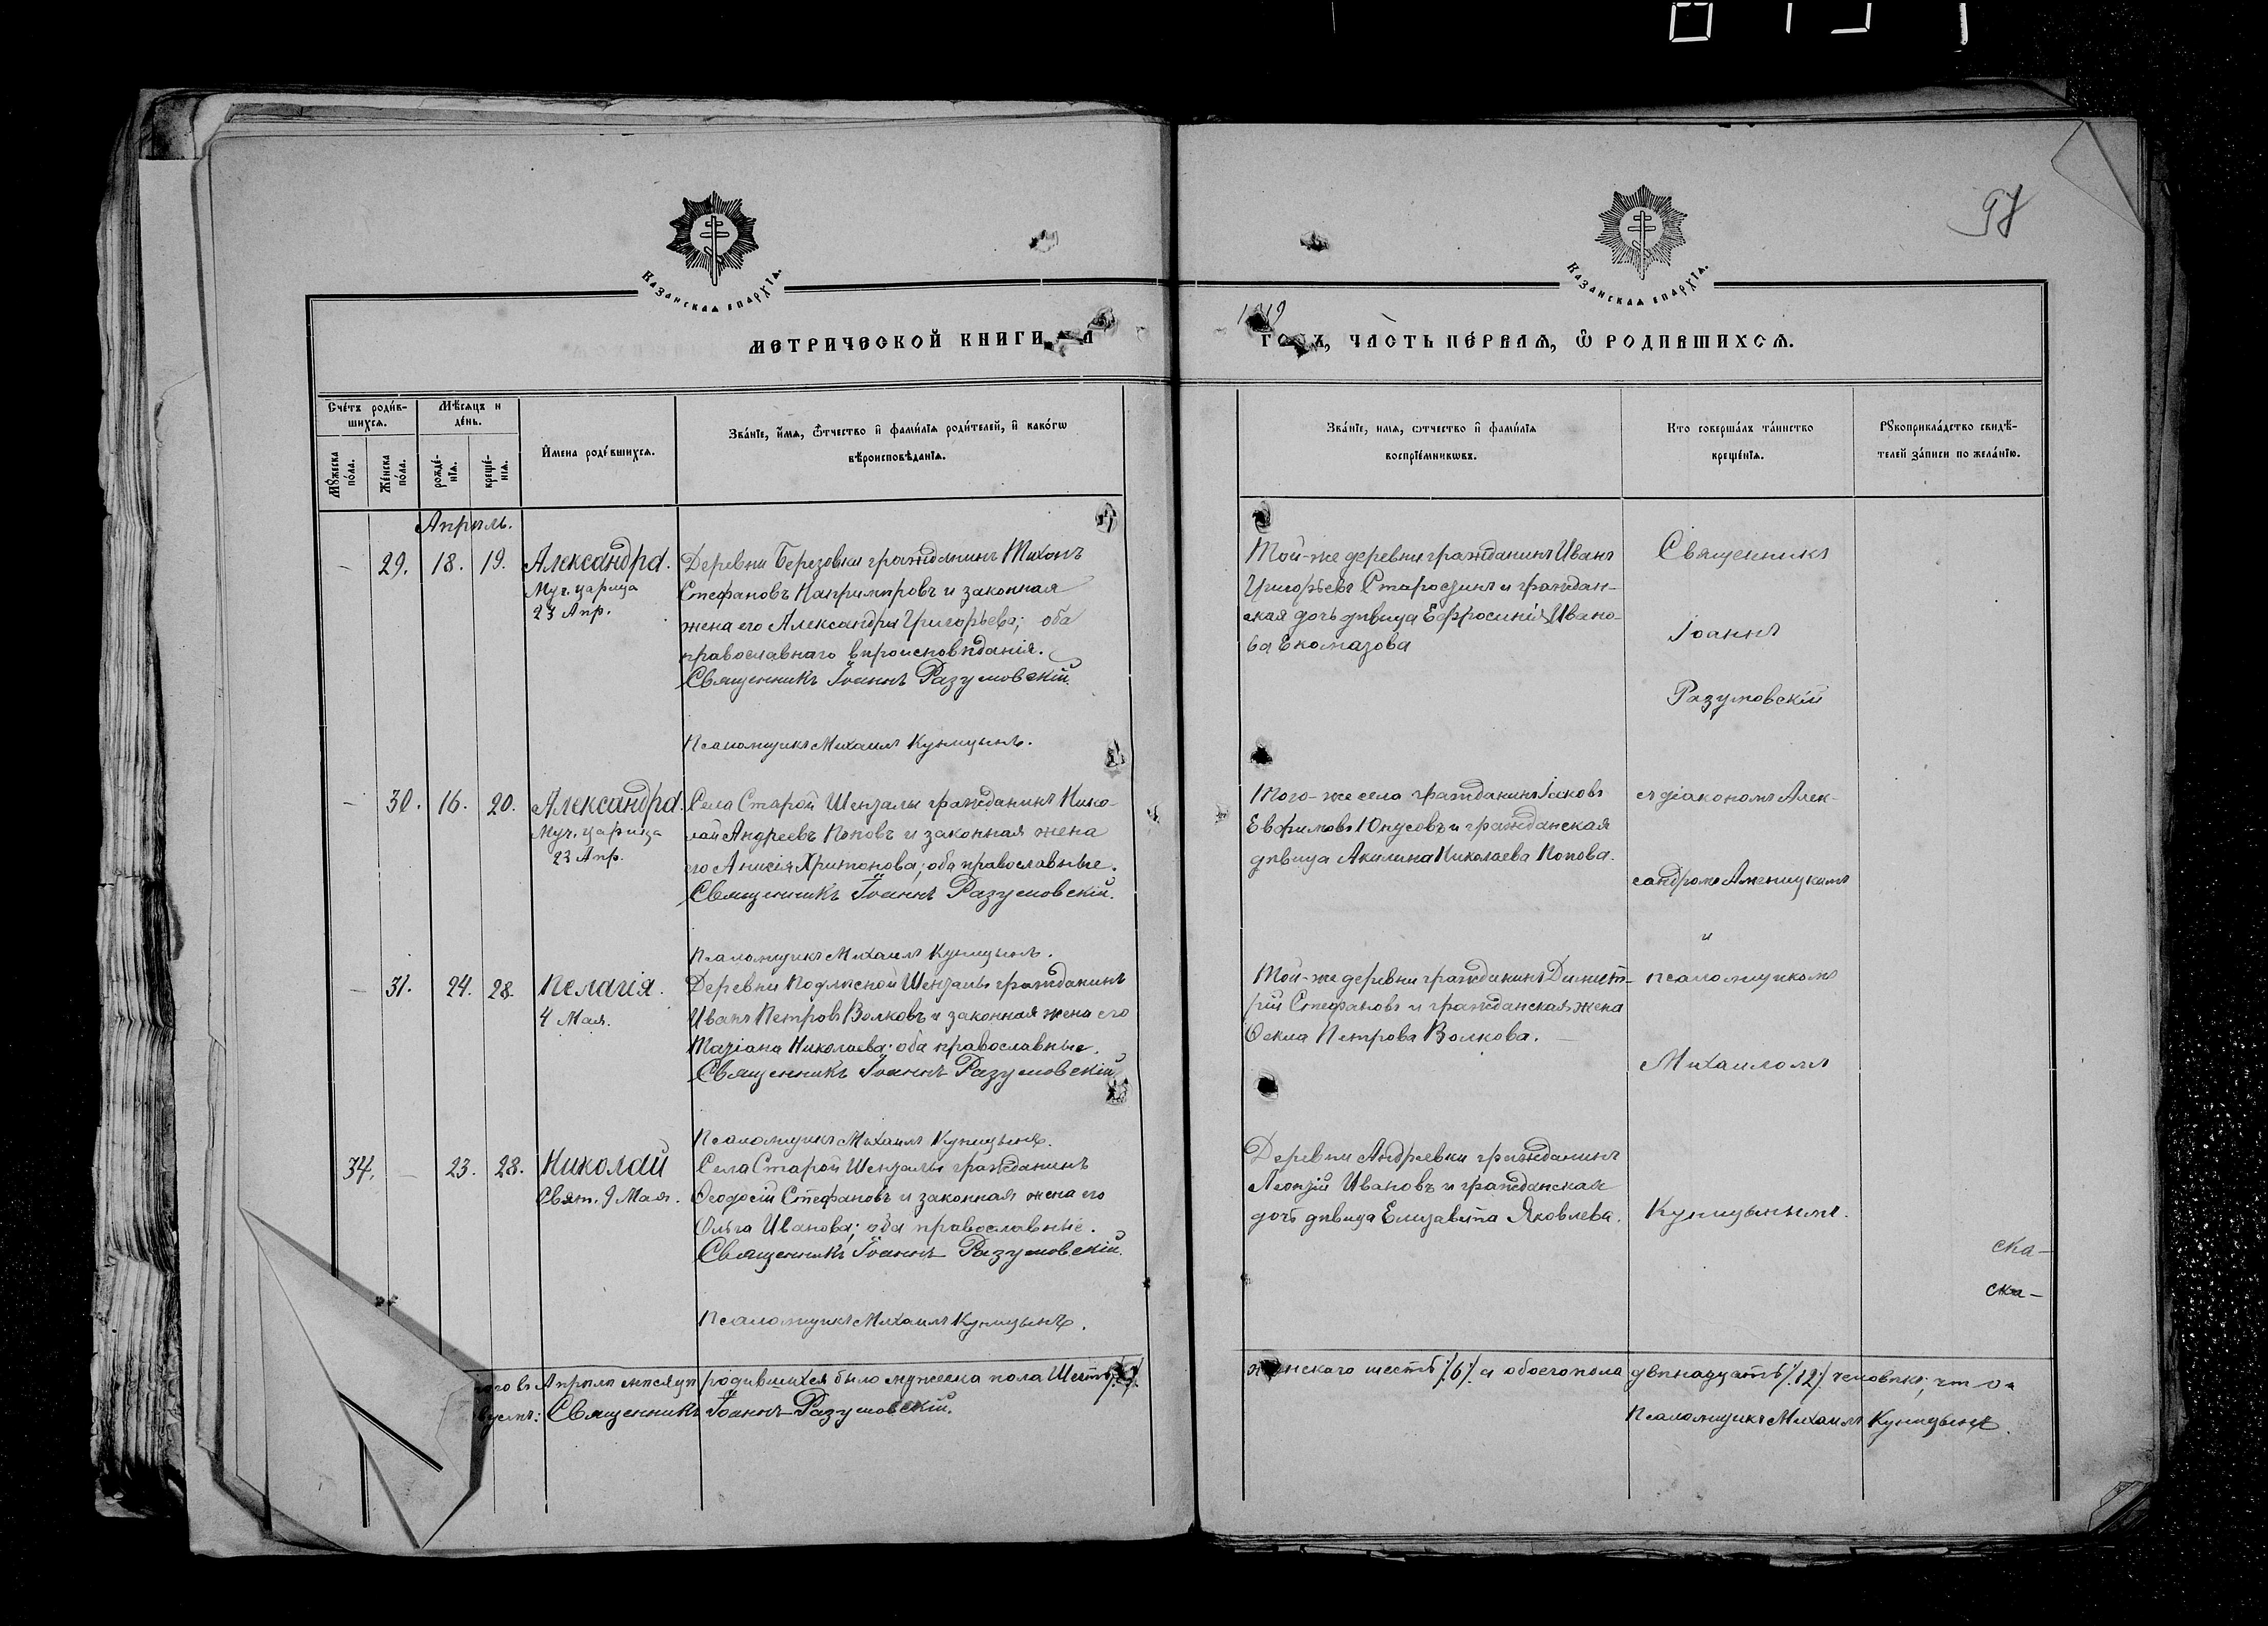 97
Казанская епархїя.
Казанская епархїя.
1919
МЕТРИЧЕСКОЙ КНИГИ
ЧАСТЬ ПЕРВАЯ, Ѡ РОДИВШИХСЯ.
Счетъ родив-
шихся.
Мѣсяцъ и
день.
Мꙋжеска
пола.
Женска
пола.
рожде-
нїя.
креще-
нїя.
Имена родившихся.
Званїе, имя, ѻтчество и фамилїя родителей, и какогѡ
вѣроисповѣданїя.
Званїе, имя, ѻтчество и фамилїя
воспрїемникѡвъ.
Кто совершалъ таинство
крещенїя.
Рꙋкоприкладство свидѣ-
телей записи по желанїю.
Апрѣль.
– 29. 18. 19. Александра.
Муч. царица
23 Апр.
Деревни Березовки гражданинъ Тихонъ
Стефановъ и законная
жена его Александра Григорьева; оба
православнаго вѣроисповѣданія.
Священникъ Іоаннъ Разумовскій.
Псаломщикъ Михаилъ Куницынъ.
Той-же деревни гражданинъ Иванъ
Григорьевъ и граждан-
ская дочь дѣвица Ефросинія Ивано-
ва
Священникъ
Іоаннъ
Разумовскій
– 30. 16. 20. Александра.
Муч. царица
23 Апр.
Села Старой Шенталы гражданинъ Нико-
лай Андреевъ Поповъ и законная жена
его Анисія Харитонова; оба православные.
Священникъ Іоаннъ Разумовскій.
Псаломщикъ Михаилъ Куницынъ.
Того-же села гражданинъ Іаковъ
Евфимовъ Юнусовъ и гражданская
дѣвица Акилина Николаева Попова.
съ діакономъ Алек-
сандромъ
и
– 31. 24. 28. Пелагія.
4 Мая.
Деревни Подлѣсной Шенталы гражданинъ
Иванъ Петровъ Волковъ и законная жена его
Николаева; оба православные.
Священникъ Іоаннъ Разумовскій
Псаломщикъ Михаилъ Куницынъ.
Той-же деревни гражданинъ Димит-
рій Стефановъ и гражданская жена
Ѳекла Петрова Волкова. –
псаломщикомъ
Михаиломъ
34. – 23. 28. Николай
Свят. 9 Мая.
Села Старой Шенталы гражданинъ
Ѳеодосій Стефановъ и законная жена его
Ольга Иванова; оба православные.
Священникъ Іоаннъ Разумовскій.
Псаломщикъ Михаилъ Куницынъ.
Деревни Андреевки гражданинъ
Леонтій Ивановъ и гражданская
дочь дѣвица Елизавета Яковлева.
Куницынымъ.
ска-
ска-
въ Апрѣлѣ мѣсяцѣ родившихся было мужеска пола шесть
женскаго шесть /6/ а обоего пола двѣнадцать /12/ человѣкъ; что
Священникъ Іоаннъ Разумовскій.
Псаломщикъ Михаилъ Куницынъ.